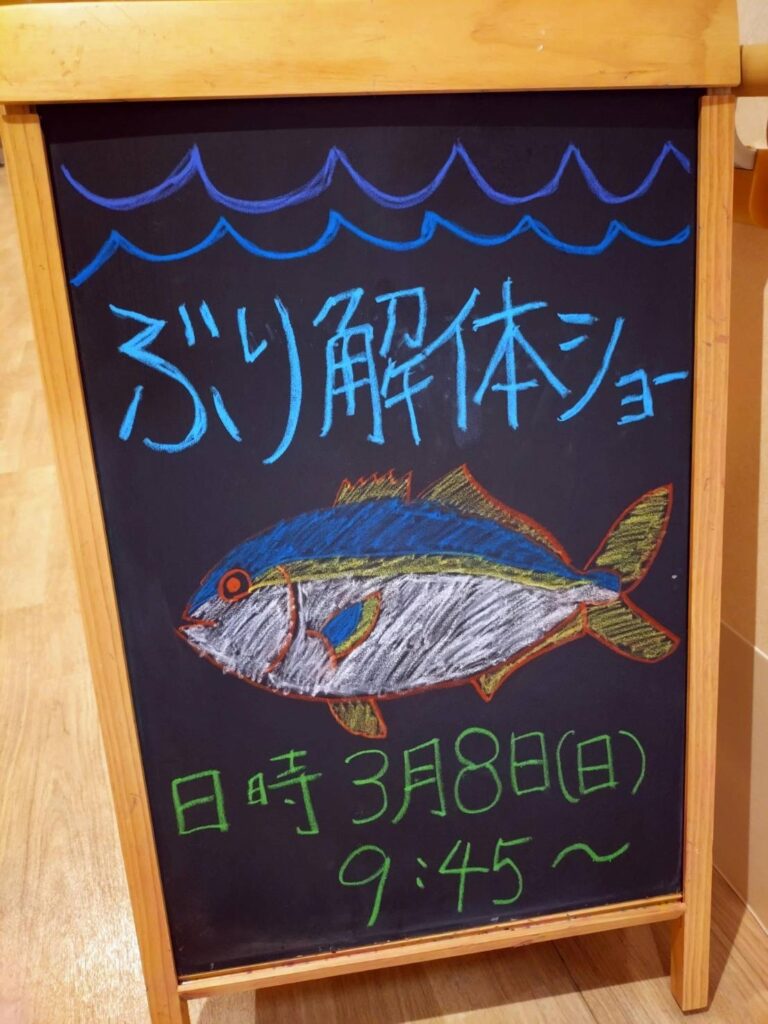 ぶり解体ショー
日時 3月8日(日)
9:45～